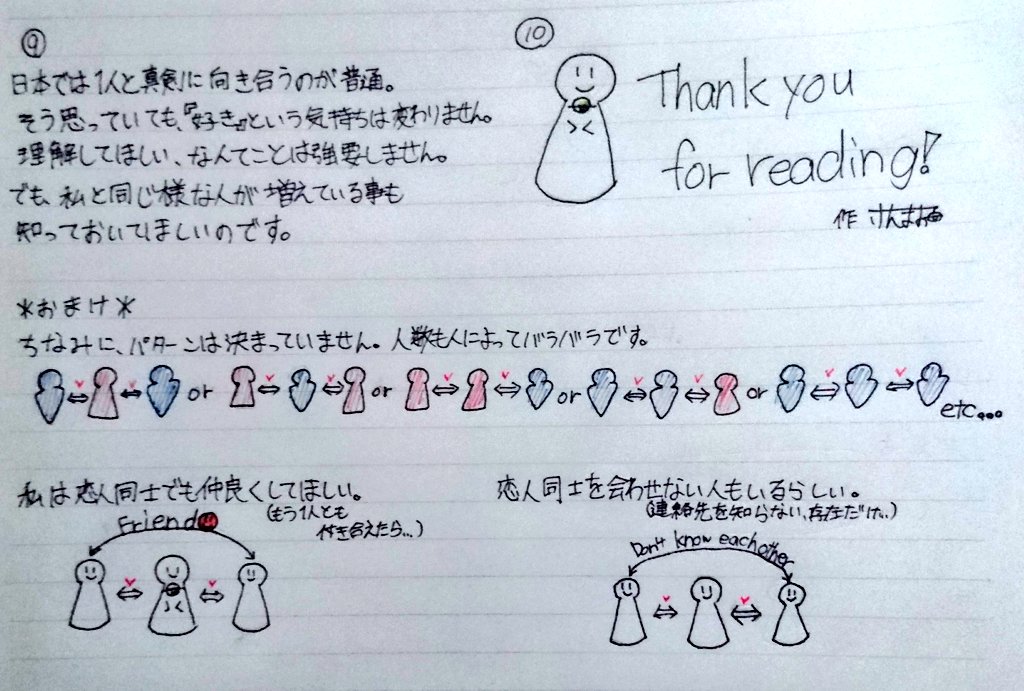 ⑨
日本では1人と真剣に向き合うのが普通。
そう思っていても、『好き』という気持ちは変わりません。
理解してほしい、なんてことは強要しません。
でも、私と同じ様な人が増えている事も
知っておいてほしいのです。
⑩
Thank you
for reading!
作 さんまね
*おまけ*
ちなみに、パターンは決まっていません。人数も人によってバラバラです。
or or or or etc...
私は恋人同士でも仲良くしてほしい。
(もう1人とも
付き合えたら...)
Friend
恋人同士を会わせない人もいるらしい。
(連絡先を知らない、存在だけ..)
Don't know eachother